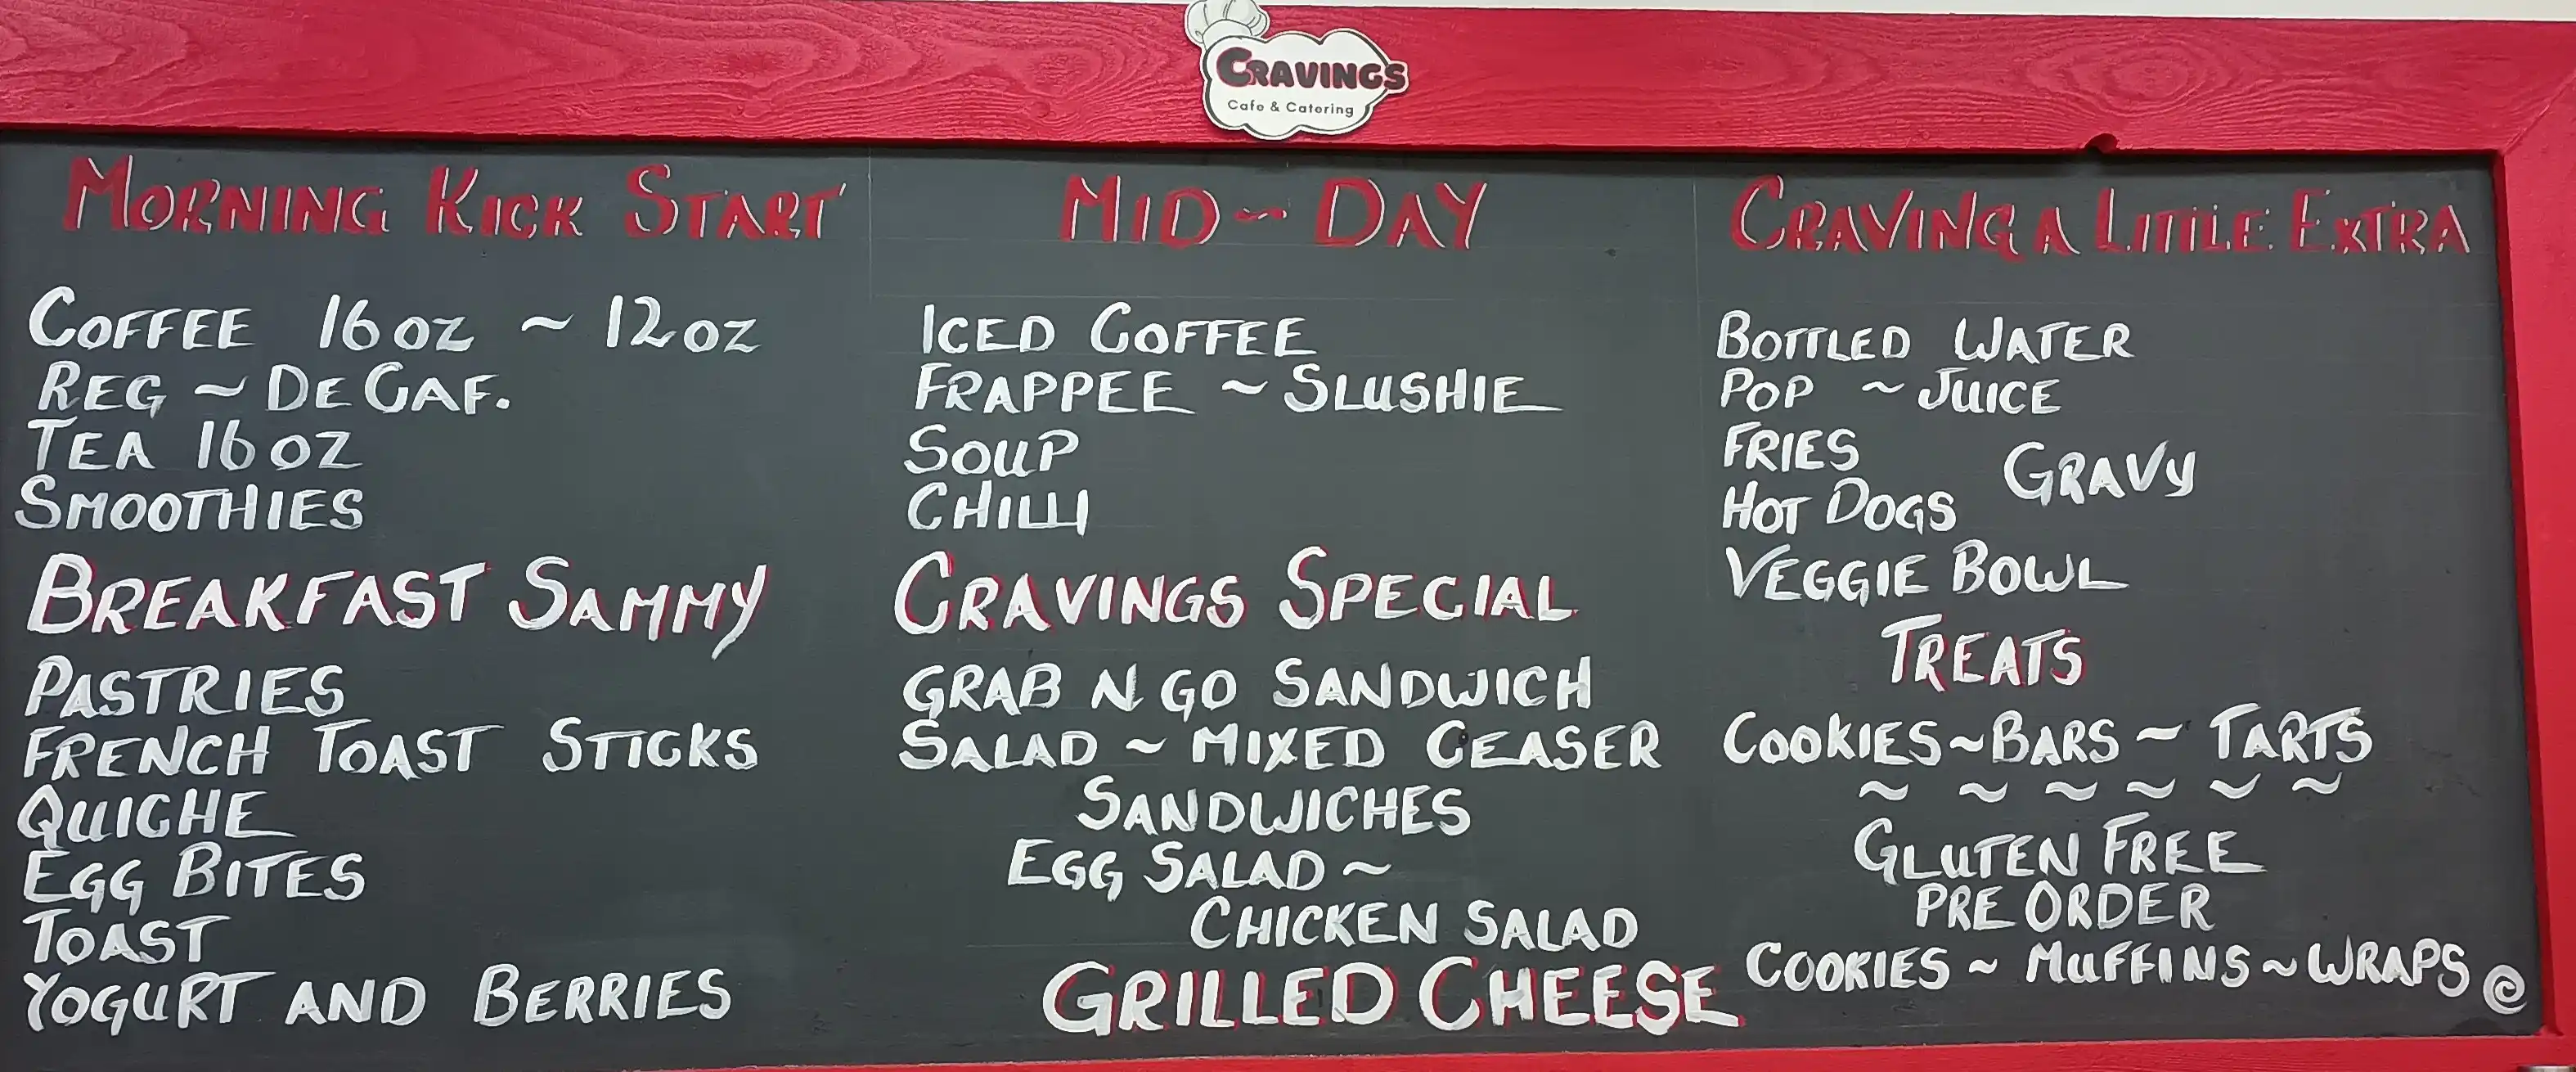 CRAVINGS
Cafe & Catering
MORNING KICK START
COFFEE 16 OZ ~ 12 OZ
REG ~ DE CAF.
TEA 16 OZ
SMOOTHIES
BREAKFAST SAMMY
PASTRIES
FRENCH TOAST STICKS
QUICHE
EGG BITES
TOAST
YOGURT AND BERRIES
MID ~ DAY
ICED COFFEE
FRAPPEE ~ SLUSHIE
SOUP
CHILLI
CRAVINGS SPECIAL
GRAB N GO SANDWICH
SALAD ~ MIXED CEASER
SANDWICHES
EGG SALAD ~
CHICKEN SALAD
GRILLED CHEESE
CRAVING A LITTLE EXTRA
BOTTLED WATER
POP ~ JUICE
FRIES
GRAVY
HOT DOGS
VEGGIE BOWL
TREATS
COOKIES ~ BARS ~ TARTS
~ ~ ~ ~ ~ ~
GLUTEN FREE
PRE ORDER
COOKIES ~ MUFFINS ~ WRAPS